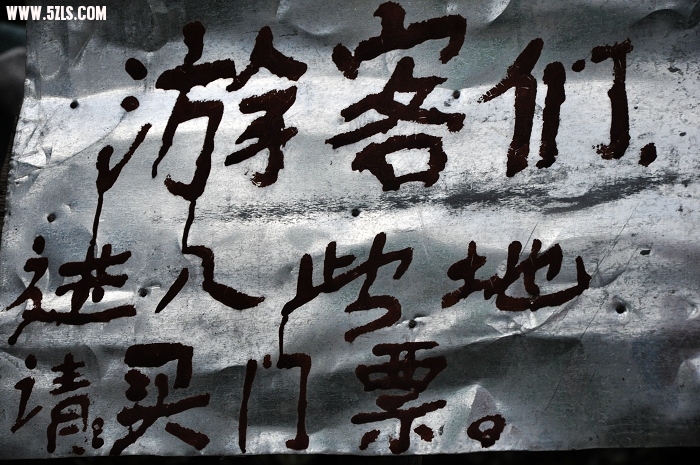 WWW.5ZLS.COM
游客们.
进入些地
请买门票。